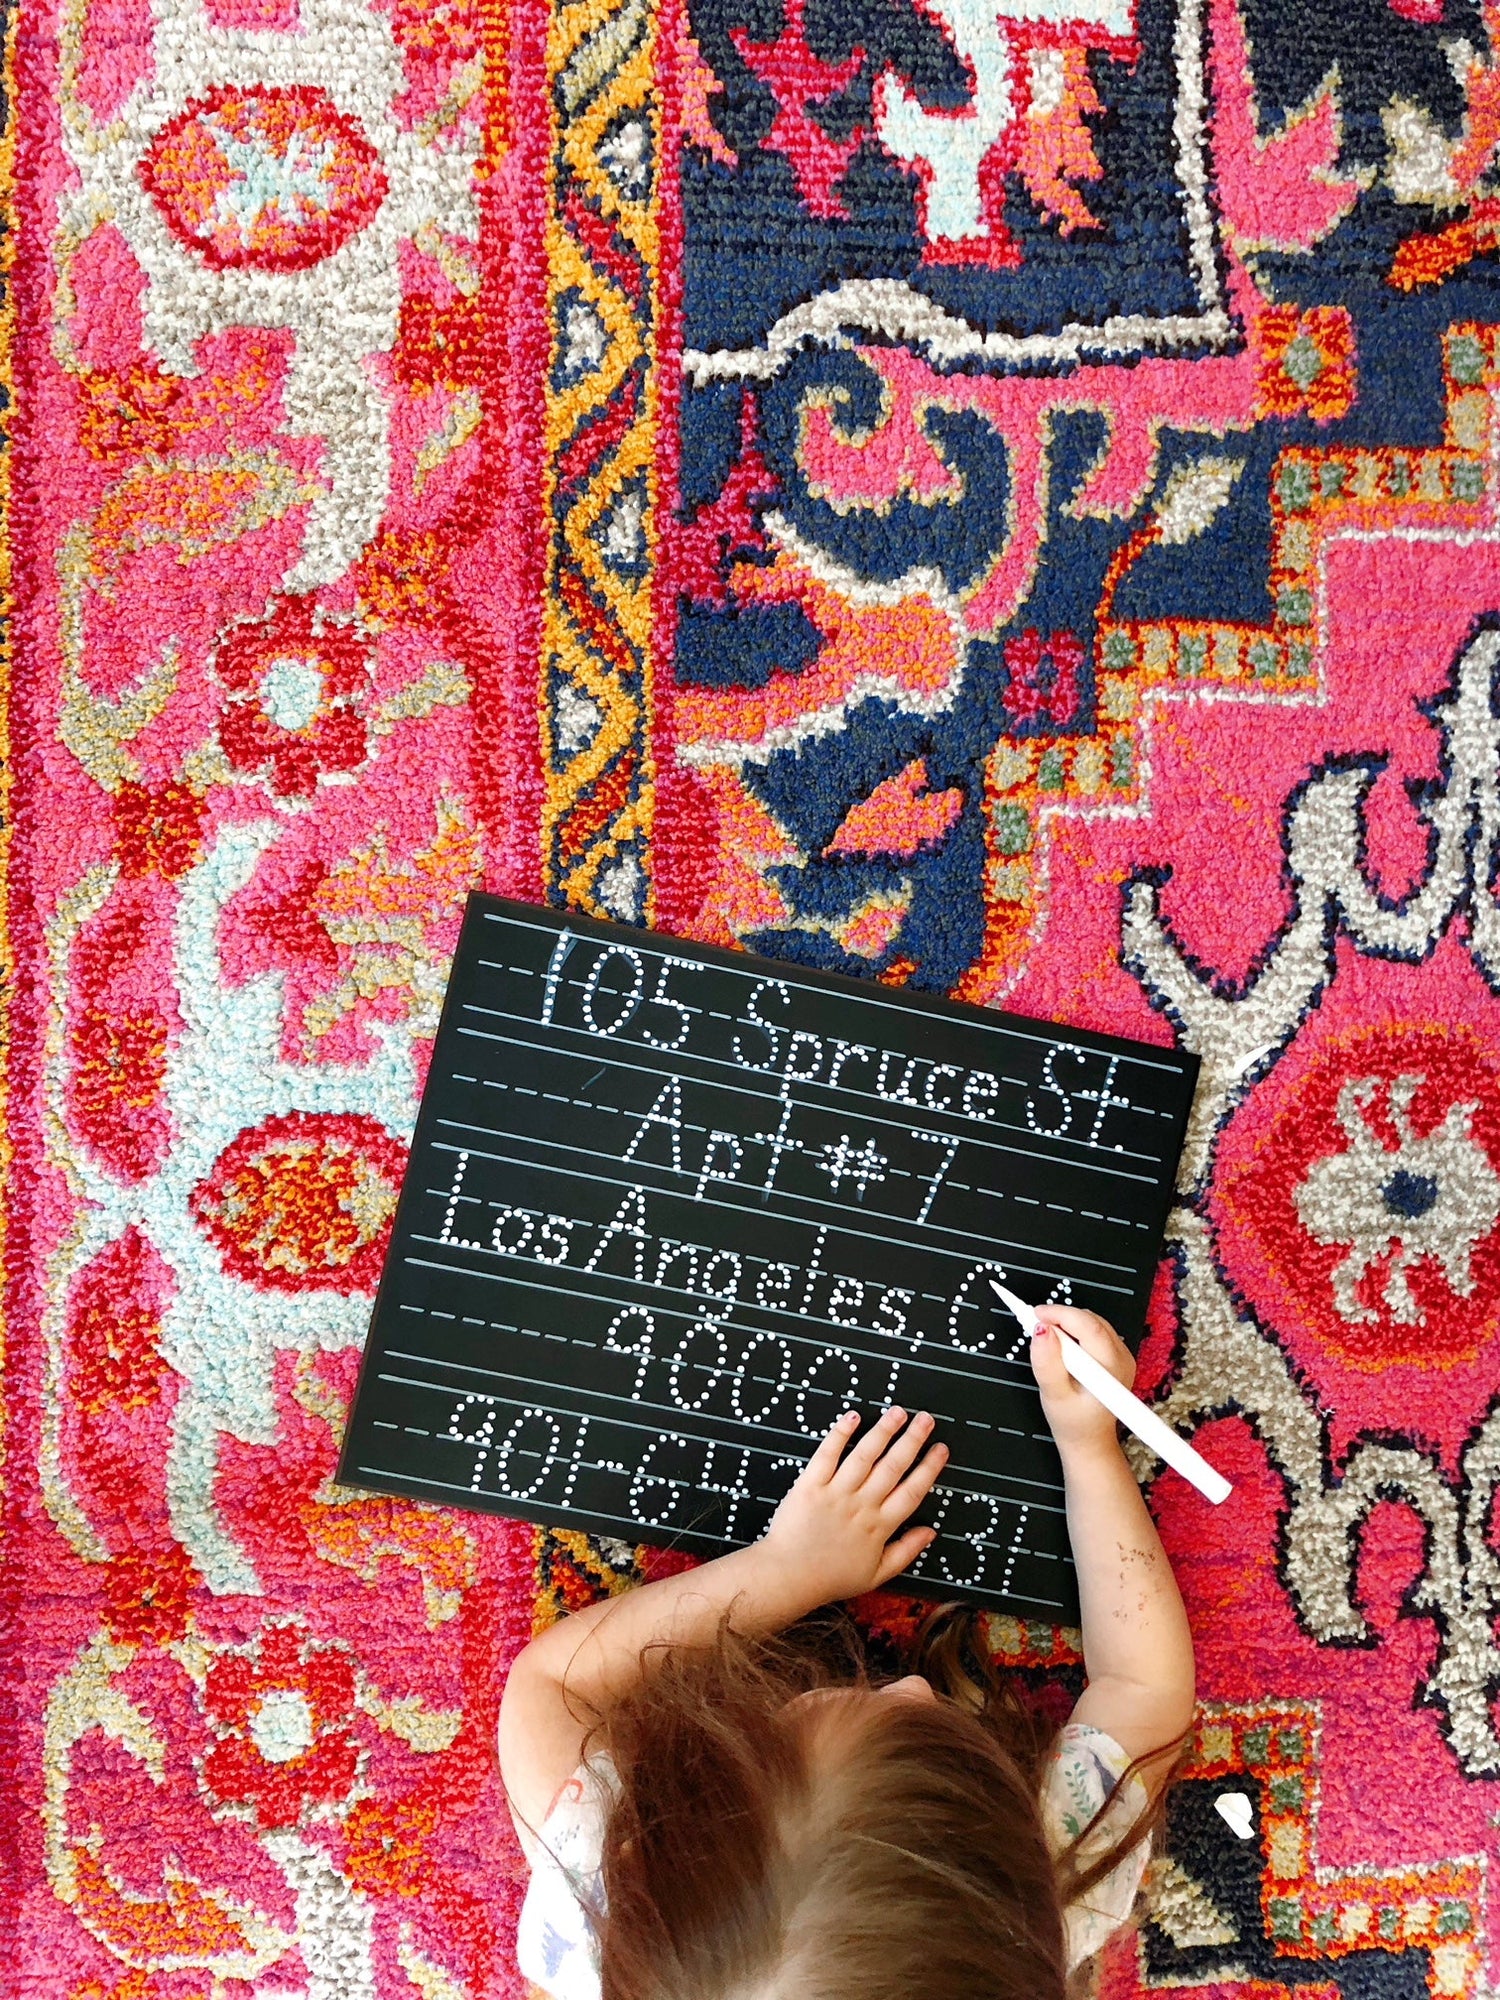 105 Spruce St.
Apt #7
Los Angeles, CA
90001
901-64 31